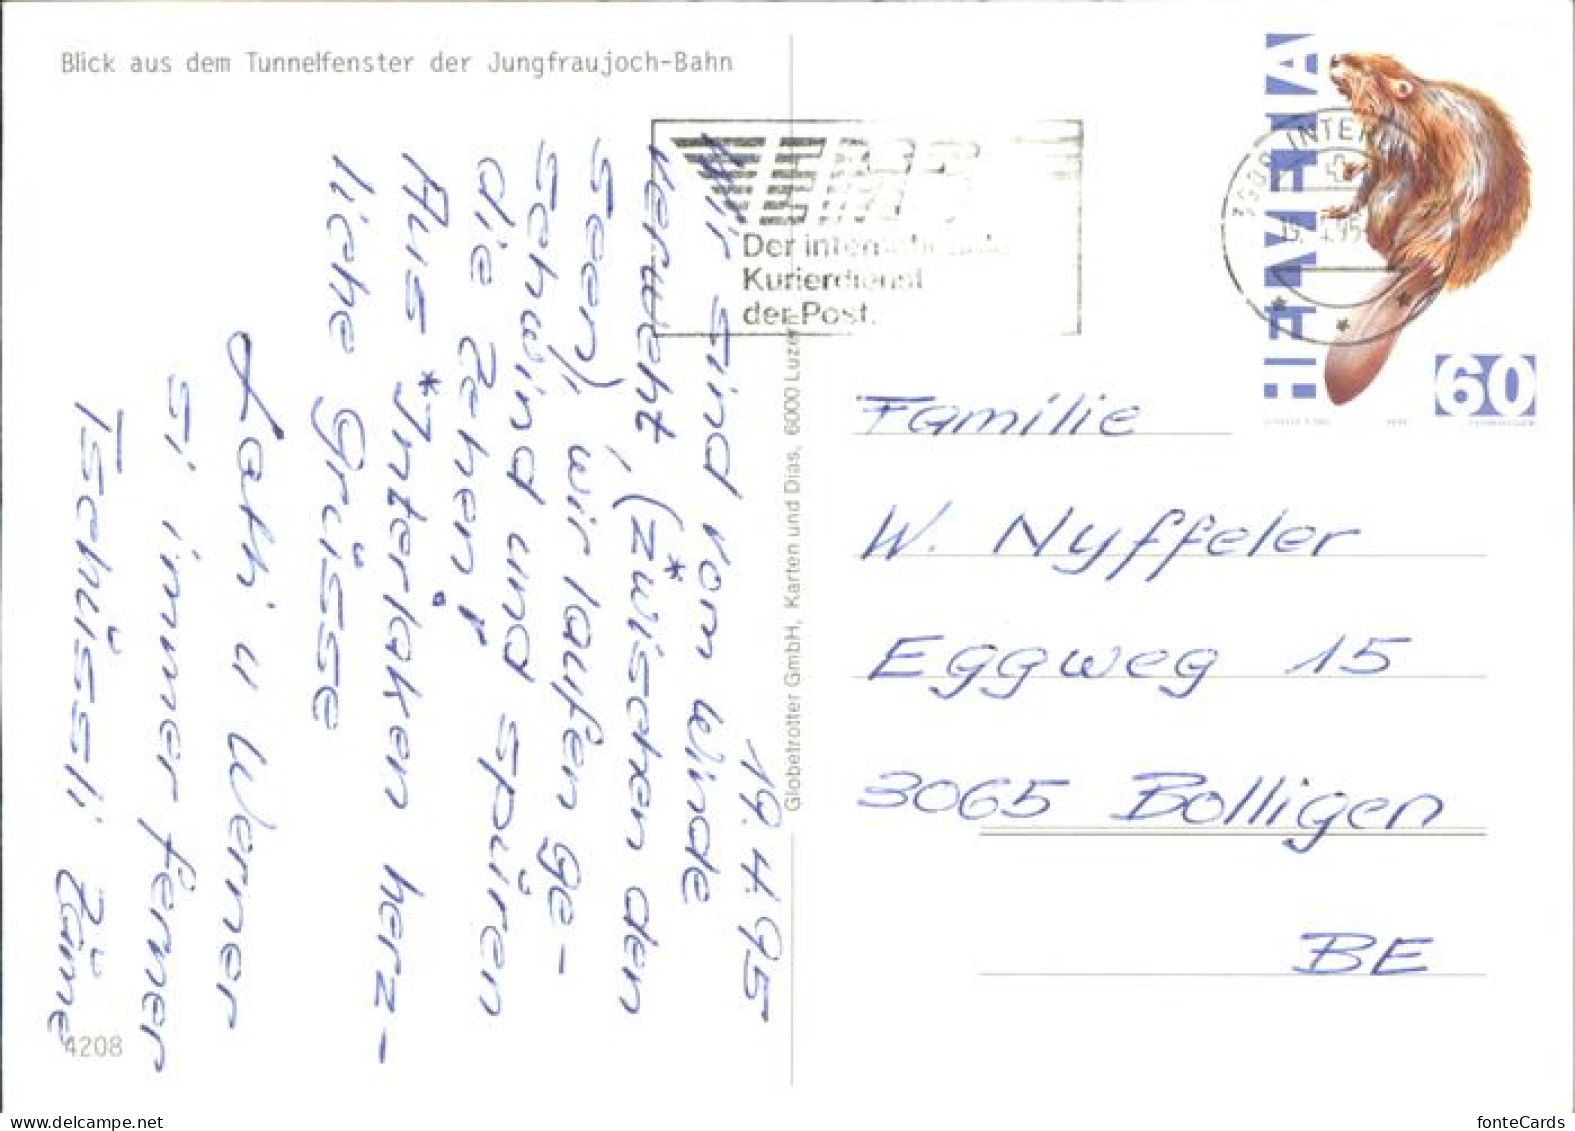 Blick aus dem Tunnelfenster der Jungfraujoch-Bahn
19.4.95
Wir sind vom Winde
verweht, (zwischen den
*
Seen) wir laufen ge-
schwind und spüren
die Zehen!
Aus *Interlaken herz-
liche Grüsse
Kathi u Werner
si immer ferner
Tschüssli Zäme
4208
Globetrotter GmbH, Karten und Dias, 6000 Luzern
EMS
Der internationale
Kurierdienst
der Post.
3800 INTERL
19. 4.95
HELVETIA
60
Familie
W. Nyffeler
Eggweg 15
3065 Bolligen
BE
delcampe.net
fonteCards